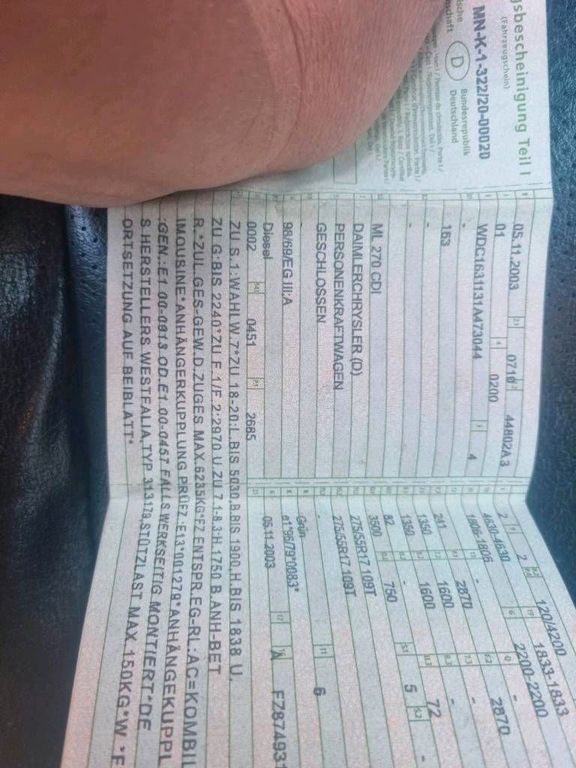 gsbescheinigung Teil I
(Fahrzeugschein)
Bundesrepublik
Deutschland
D
MN-K-1-322/20-00020
05.11.2003 0710 44802A3
01 0200
WDC1631131A473044 4
-
163
-
ML 270 CDI
DAIMLERCHRYSLER (D)
PERSONENKRAFTWAGEN
GESCHLOSSEN
-
98/69/EG III;A
Diesel
0002 0451 2685
2 2 120/4200
4630-4630 1833-1833
1806-1806 2200-2200
- 2870 2870
241 1600 72
1350 1600 5 -
1350 -
82 750
3500
275/55R17 109T
275/55R17 109T
- 6
Grün
e1*96/79*0083*
05.11.2003 A FZ874931
ZU S.1:WAHLW.7*ZU 18-20:L.BIS 5030,B.BIS 1900,H.BIS 1838 U.
ZU G:BIS 2240*ZU F.1/F.2:2970 U.ZU 7.1-8.3:H.1750 B.ANH-BET
R.*ZUL.GES-GEW.D.ZUGES.MAX.6235KG*FZ.ENTSPR.EG-RL.:AC=KOMBIL
IMOUSINE*ANHÄNGERKUPPLUNG PRÜFZ.:E13*00*1279*ANHÄNGEKUPPL
.GEN.:E1 00-0913 OD.E1 00-0457 FALLS WERKSEITIG MONTIERT*DE
S HERSTELLERS WESTFALIA,TYP 313179,STÜTZLAST MAX.150KG*W.*F
ORTSETZUNG AUF BEIBLATT*